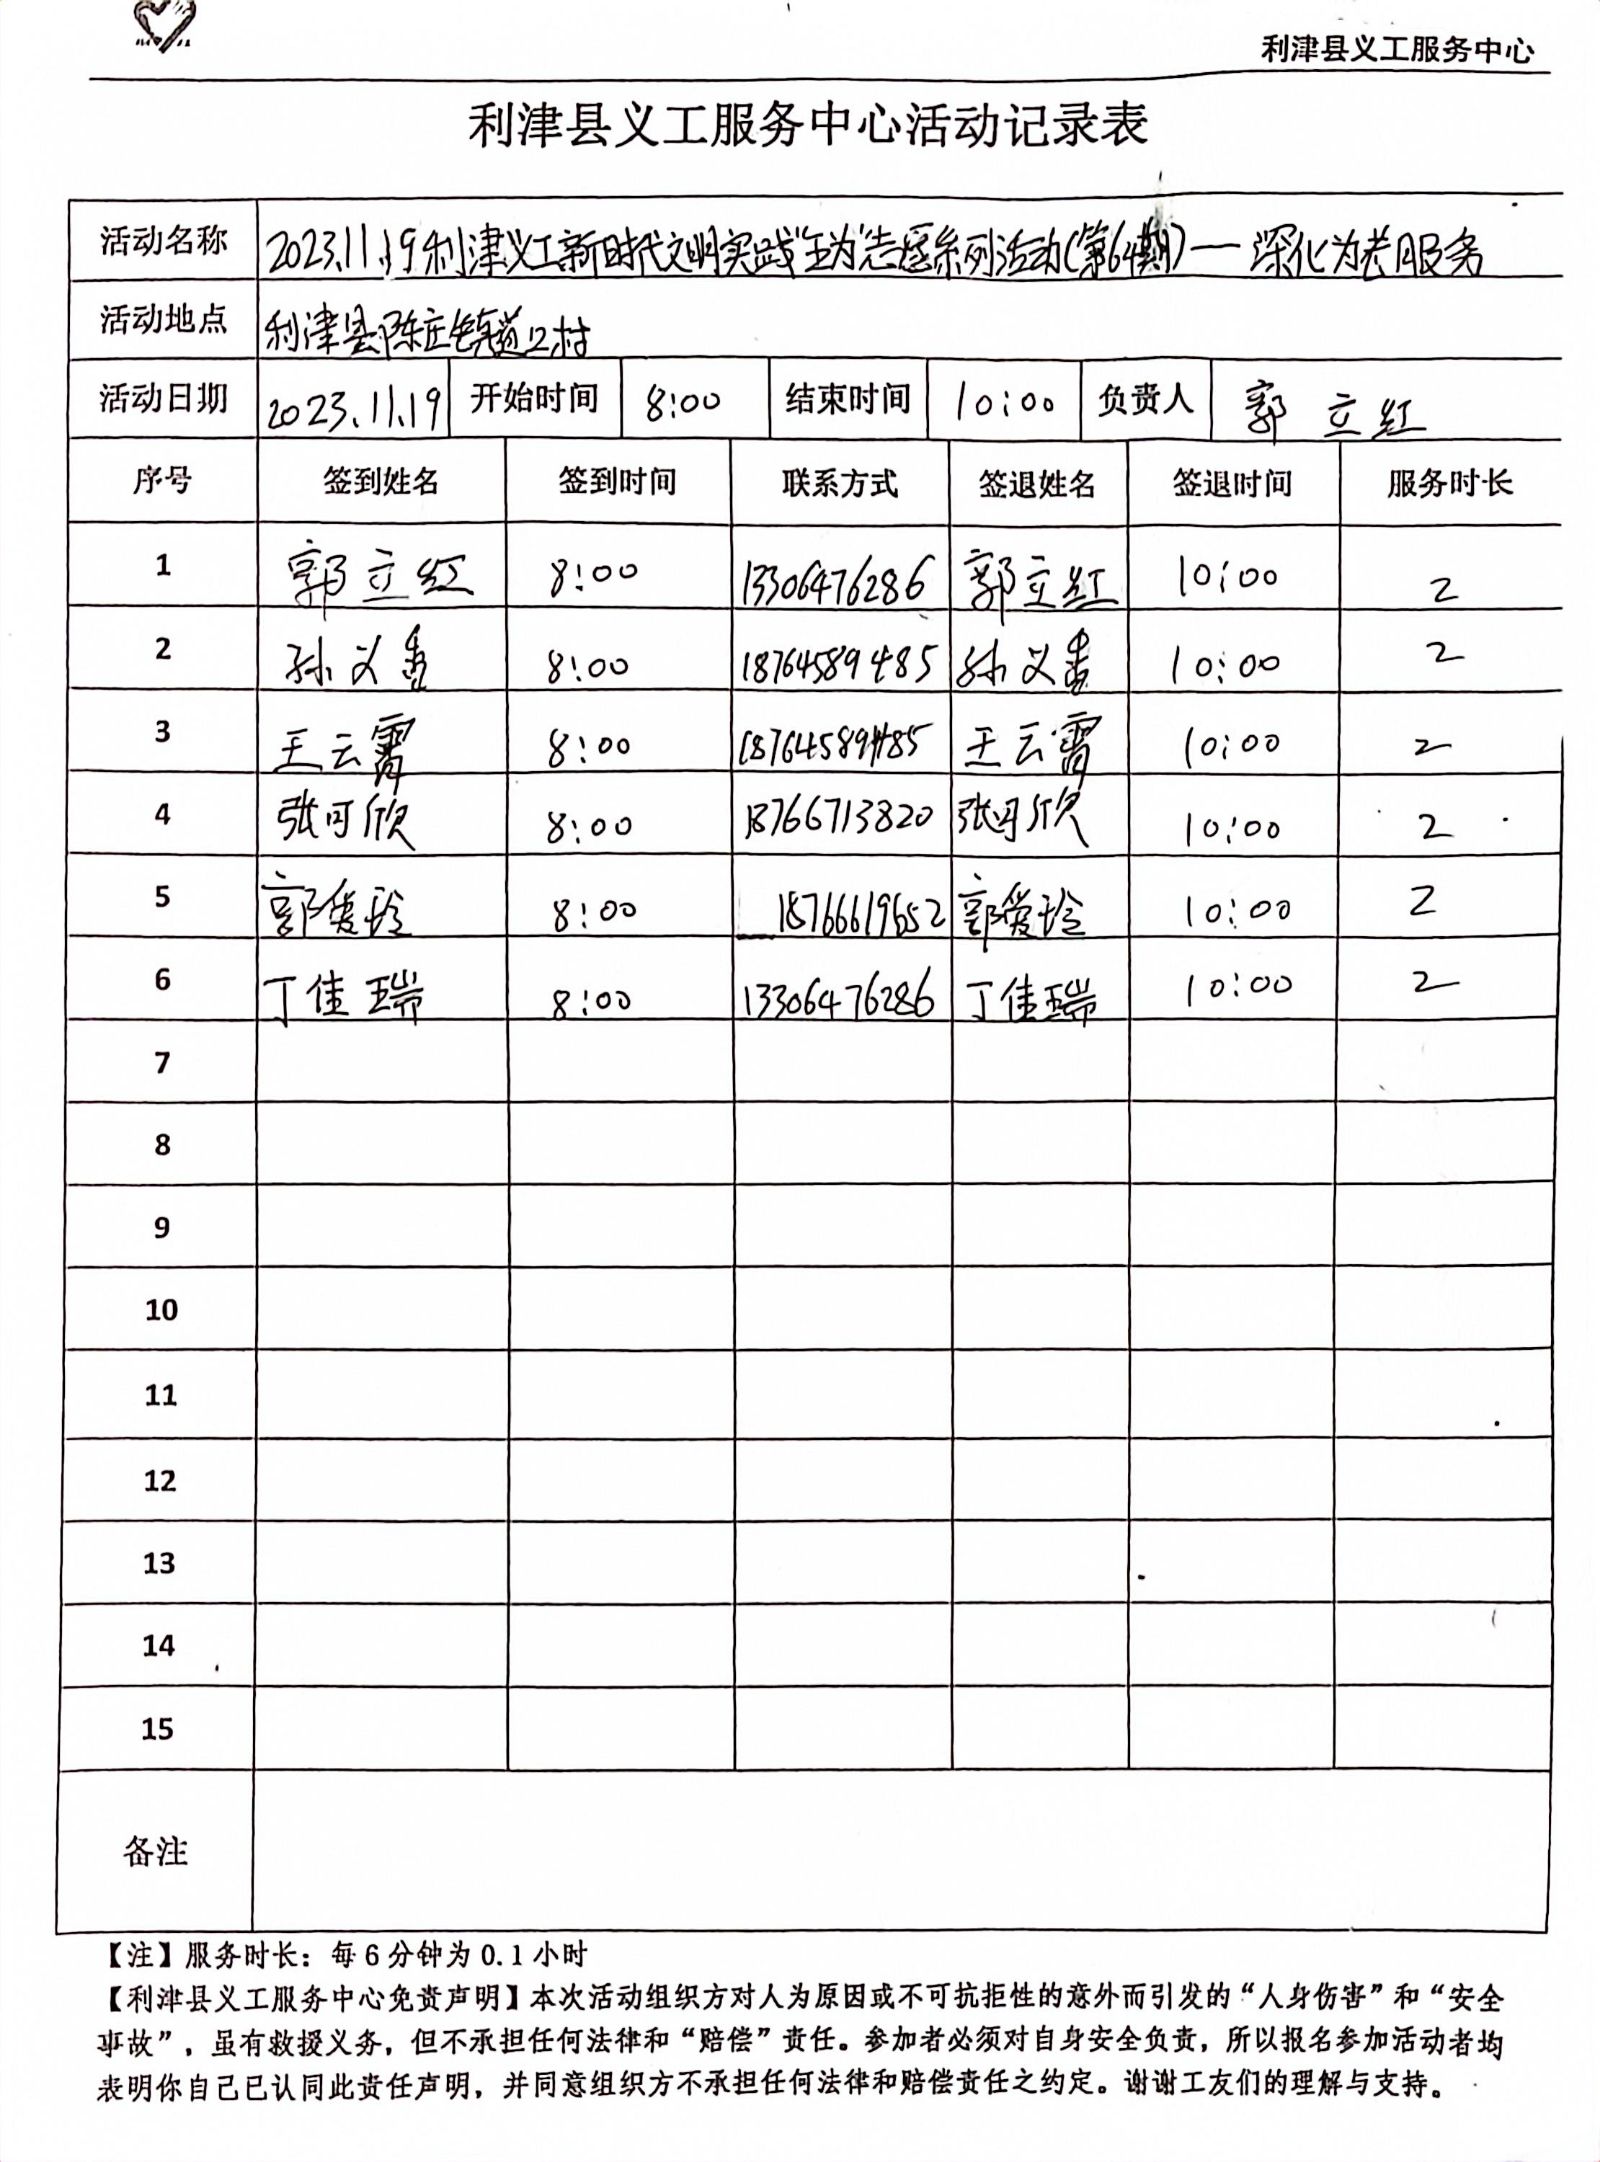 利津县义工服务中心
利津县义工服务中心活动记录表
活动名称 2023.11.19利津义工新时代文明实践"五为"志愿系列活动(第64期)—深化为老服务
活动地点 利津县陈庄镇道口村
活动日期 2023.11.19 开始时间 8:00 结束时间 10:00 负责人 郭立红
序号 签到姓名 签到时间 联系方式 签退姓名 签退时间 服务时长
1 郭立红 8:00 13306476286 郭立红 10:00 2
2 孙义香 8:00 18764589485 孙义香 10:00 2
3 王云霄 8:00 18764589485 王云霄 10:00 2
4 张可欣 8:00 18766713820 张可欣 10:00 2
5 郭爱玲 8:00 18766619652 郭爱玲 10:00 2
6 丁佳瑞 8:00 13306476286 丁佳瑞 10:00 2
7
8
9
10
11
12
13
14
15
备注
【注】服务时长：每6分钟为0.1小时
【利津县义工服务中心免责声明】本次活动组织方对人为原因或不可抗拒性的意外而引发的“人身伤害”和“安全
事故”，虽有救援义务，但不承担任何法律和“赔偿”责任。参加者必须对自身安全负责，所以报名参加活动者均
表明你自己已认同此责任声明，并同意组织方不承担任何法律和赔偿责任之约定。谢谢工友们的理解与支持。